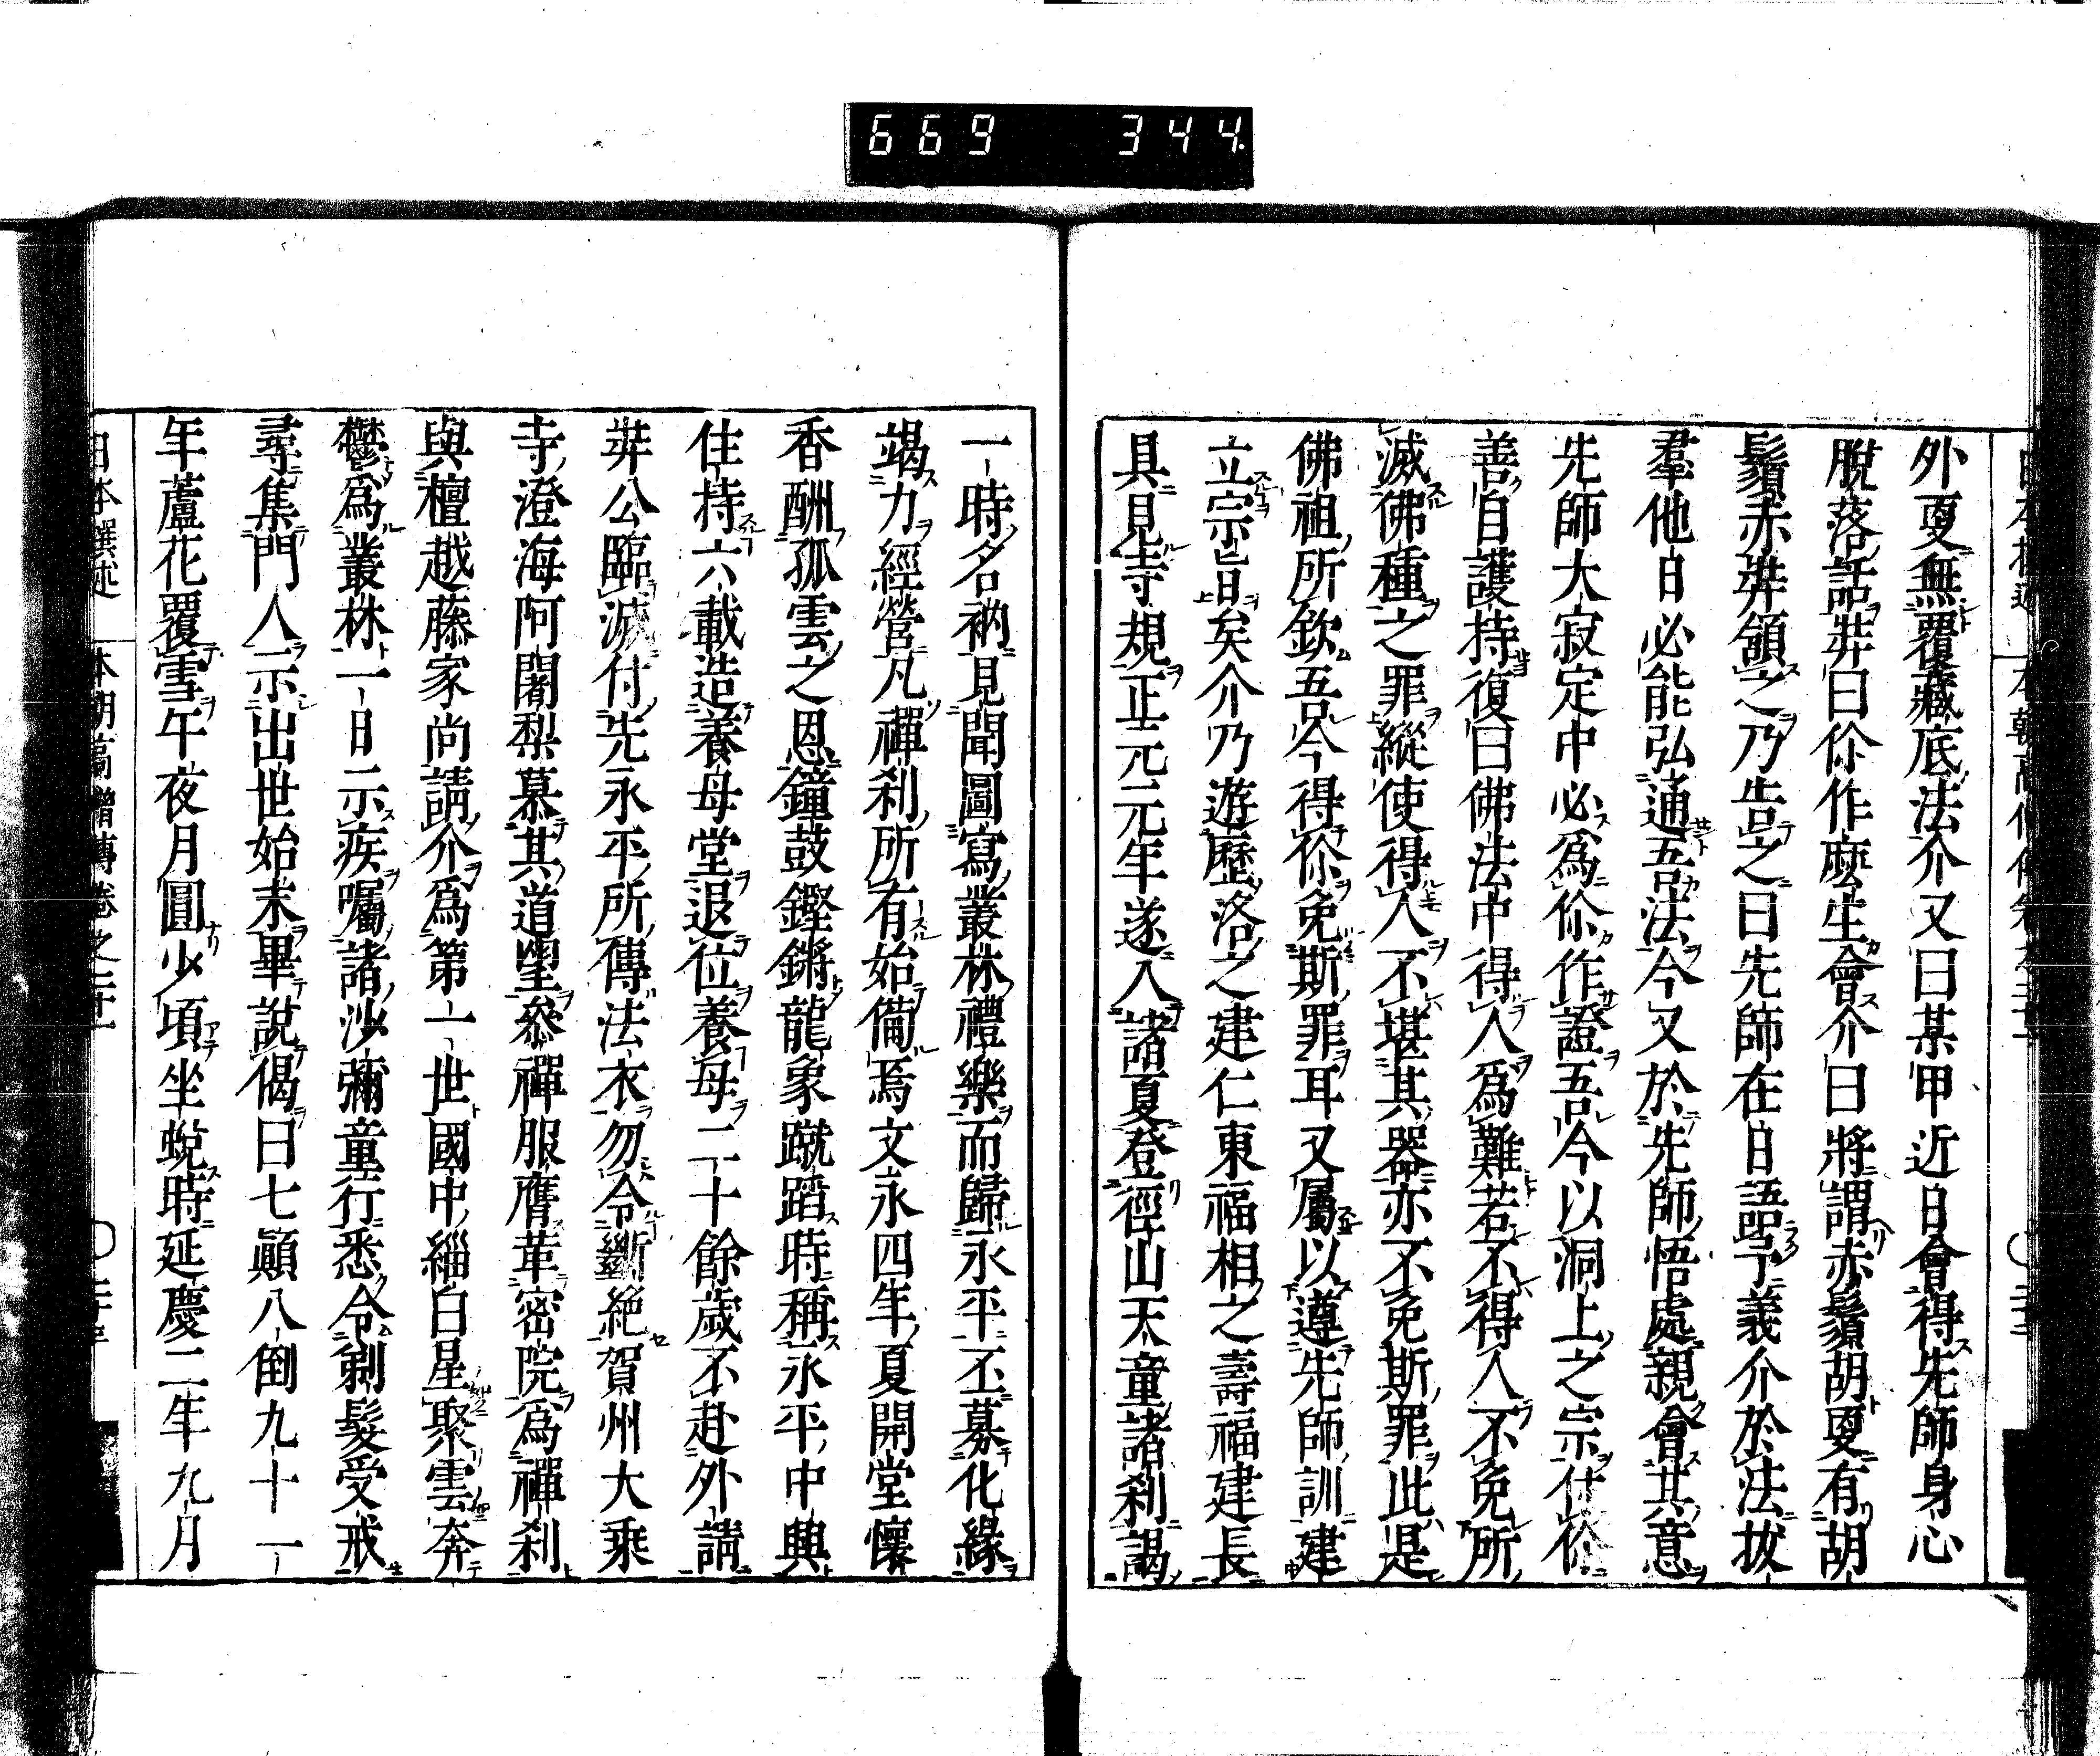 669 344
外更無覆藏底法介又曰某甲近日會得先師身心
脫落話弉曰你作麼生會介曰將謂赤鬚胡更有胡
鬚赤弉頷之乃告之曰先師在日語予義介於法拔
羣他日必能弘通吾法今又於先師悟處親會其意
先師大寂定中必爲你作證吾今以洞上之宗付你
善自護持復曰佛法中得人爲難若不得人不免所
滅佛種之罪縱使得人不堪其器亦不免斯罪此是
佛祖所欽吾今得你免斯罪耳又屬以遵先師訓建
立宗旨矣介乃遊歷洛之建仁東福相之壽福建長
具見寺規正元元年遂入諸夏登徑山天童諸刹謁
一時名衲見聞圖寫叢林禮樂而歸永平丕募化緣
竭力經營凡禪刹所有始備焉文永四年夏開堂懷
香酬孤雲之恩鐘鼓鏗鏘龍象蹴踏時稱永平中興
住持六載造養母堂退位養母二十餘歲不赴外請
弉公臨滅付先永平所傳法衣勿令斷絕賀州大乘
寺澄海阿闍梨慕其道望參禪服膺革密院爲禪刹
與檀越藤家尚請介爲第一世國中緇白星聚雲奔
鬱爲叢林一日示疾囑諸沙彌童行悉令剃髮受戒
尋集門人示出世始末畢說偈曰七顚八倒九十一
年蘆花覆雪午夜月圓少頃坐蛻時延慶二年九月
日本撰述 本朝高僧傳卷之二十一